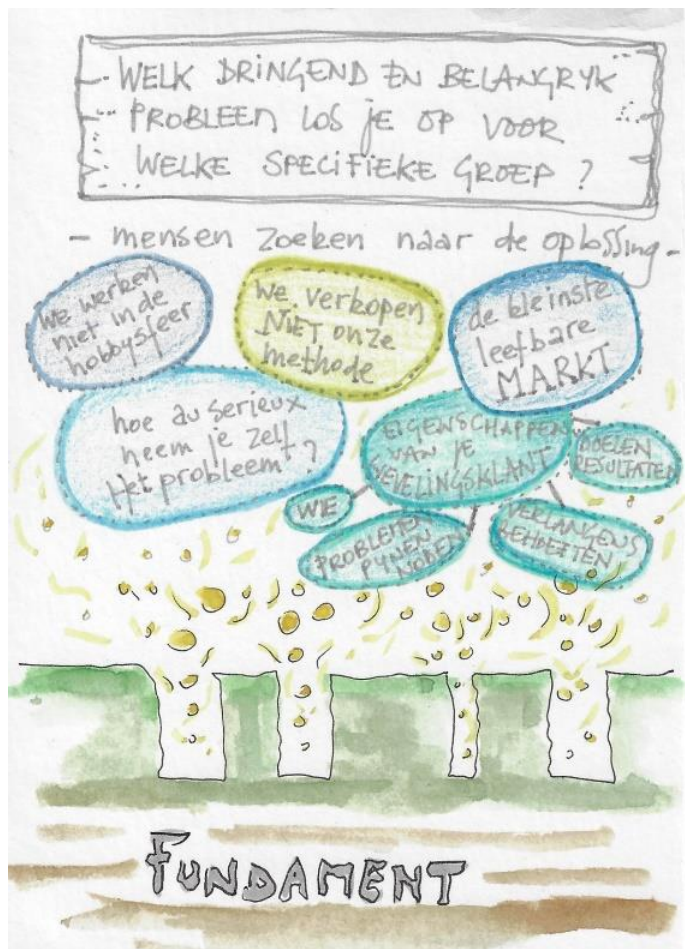 WELK DRINGEND EN BELANGRYK
PROBLEEM LOS JE OP VOOR
WELKE SPECIFIEKE GROEP ?
- mensen zoeken naar de oplossing -
we werken
niet in de
hobbysfeer
we verkopen
NIET onze
methode
de kleinste
leefbare
MARKT
hoe au serieux
neem je zelf
Het probleem ?
EIGENSCHAPPEN
VAN JE
LIEVELINGSKLANT
DOELEN
RESULTATEN
WIE
PROBLEMEN
PYNEN
NODEN
VERLANGENS
BEHOEFTEN
FUNDAMENT